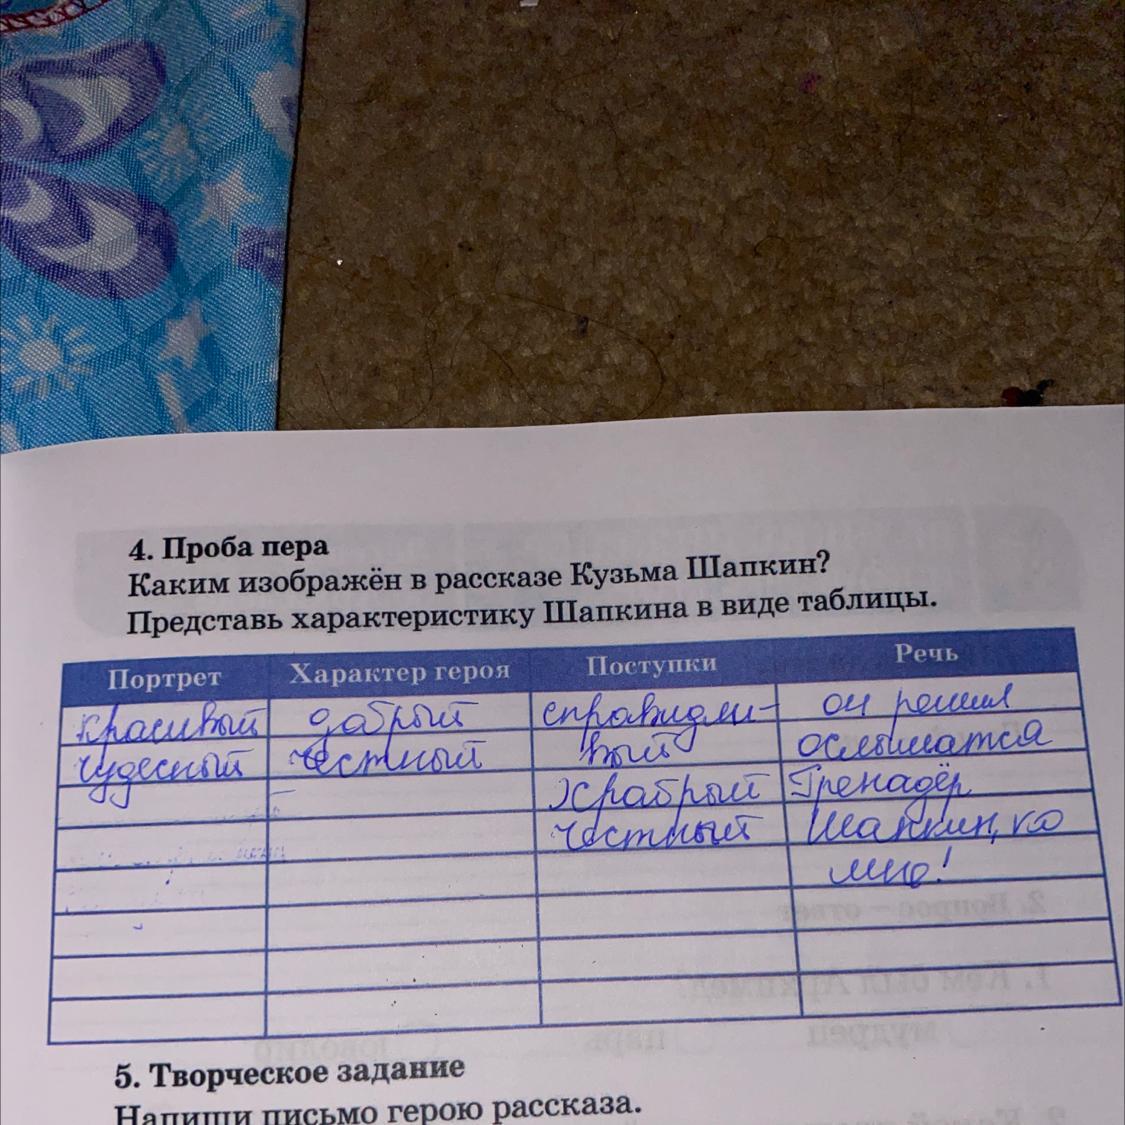 4. Проба пера
Каким изображён в рассказе Кузьма Шапкин?
Представь характеристику Шапкина в виде таблицы.
Портрет Характер героя Поступки Речь
красивый добрый справидли- он решил
чудесный честный вый ослышатся
храбрый Гренадёр
честный Шапкин, ко
мне!
2. Вопрос – ответ
1. Кем был Архимед?
мудрец царь
5. Творческое задание
Напиши письмо герою рассказа.